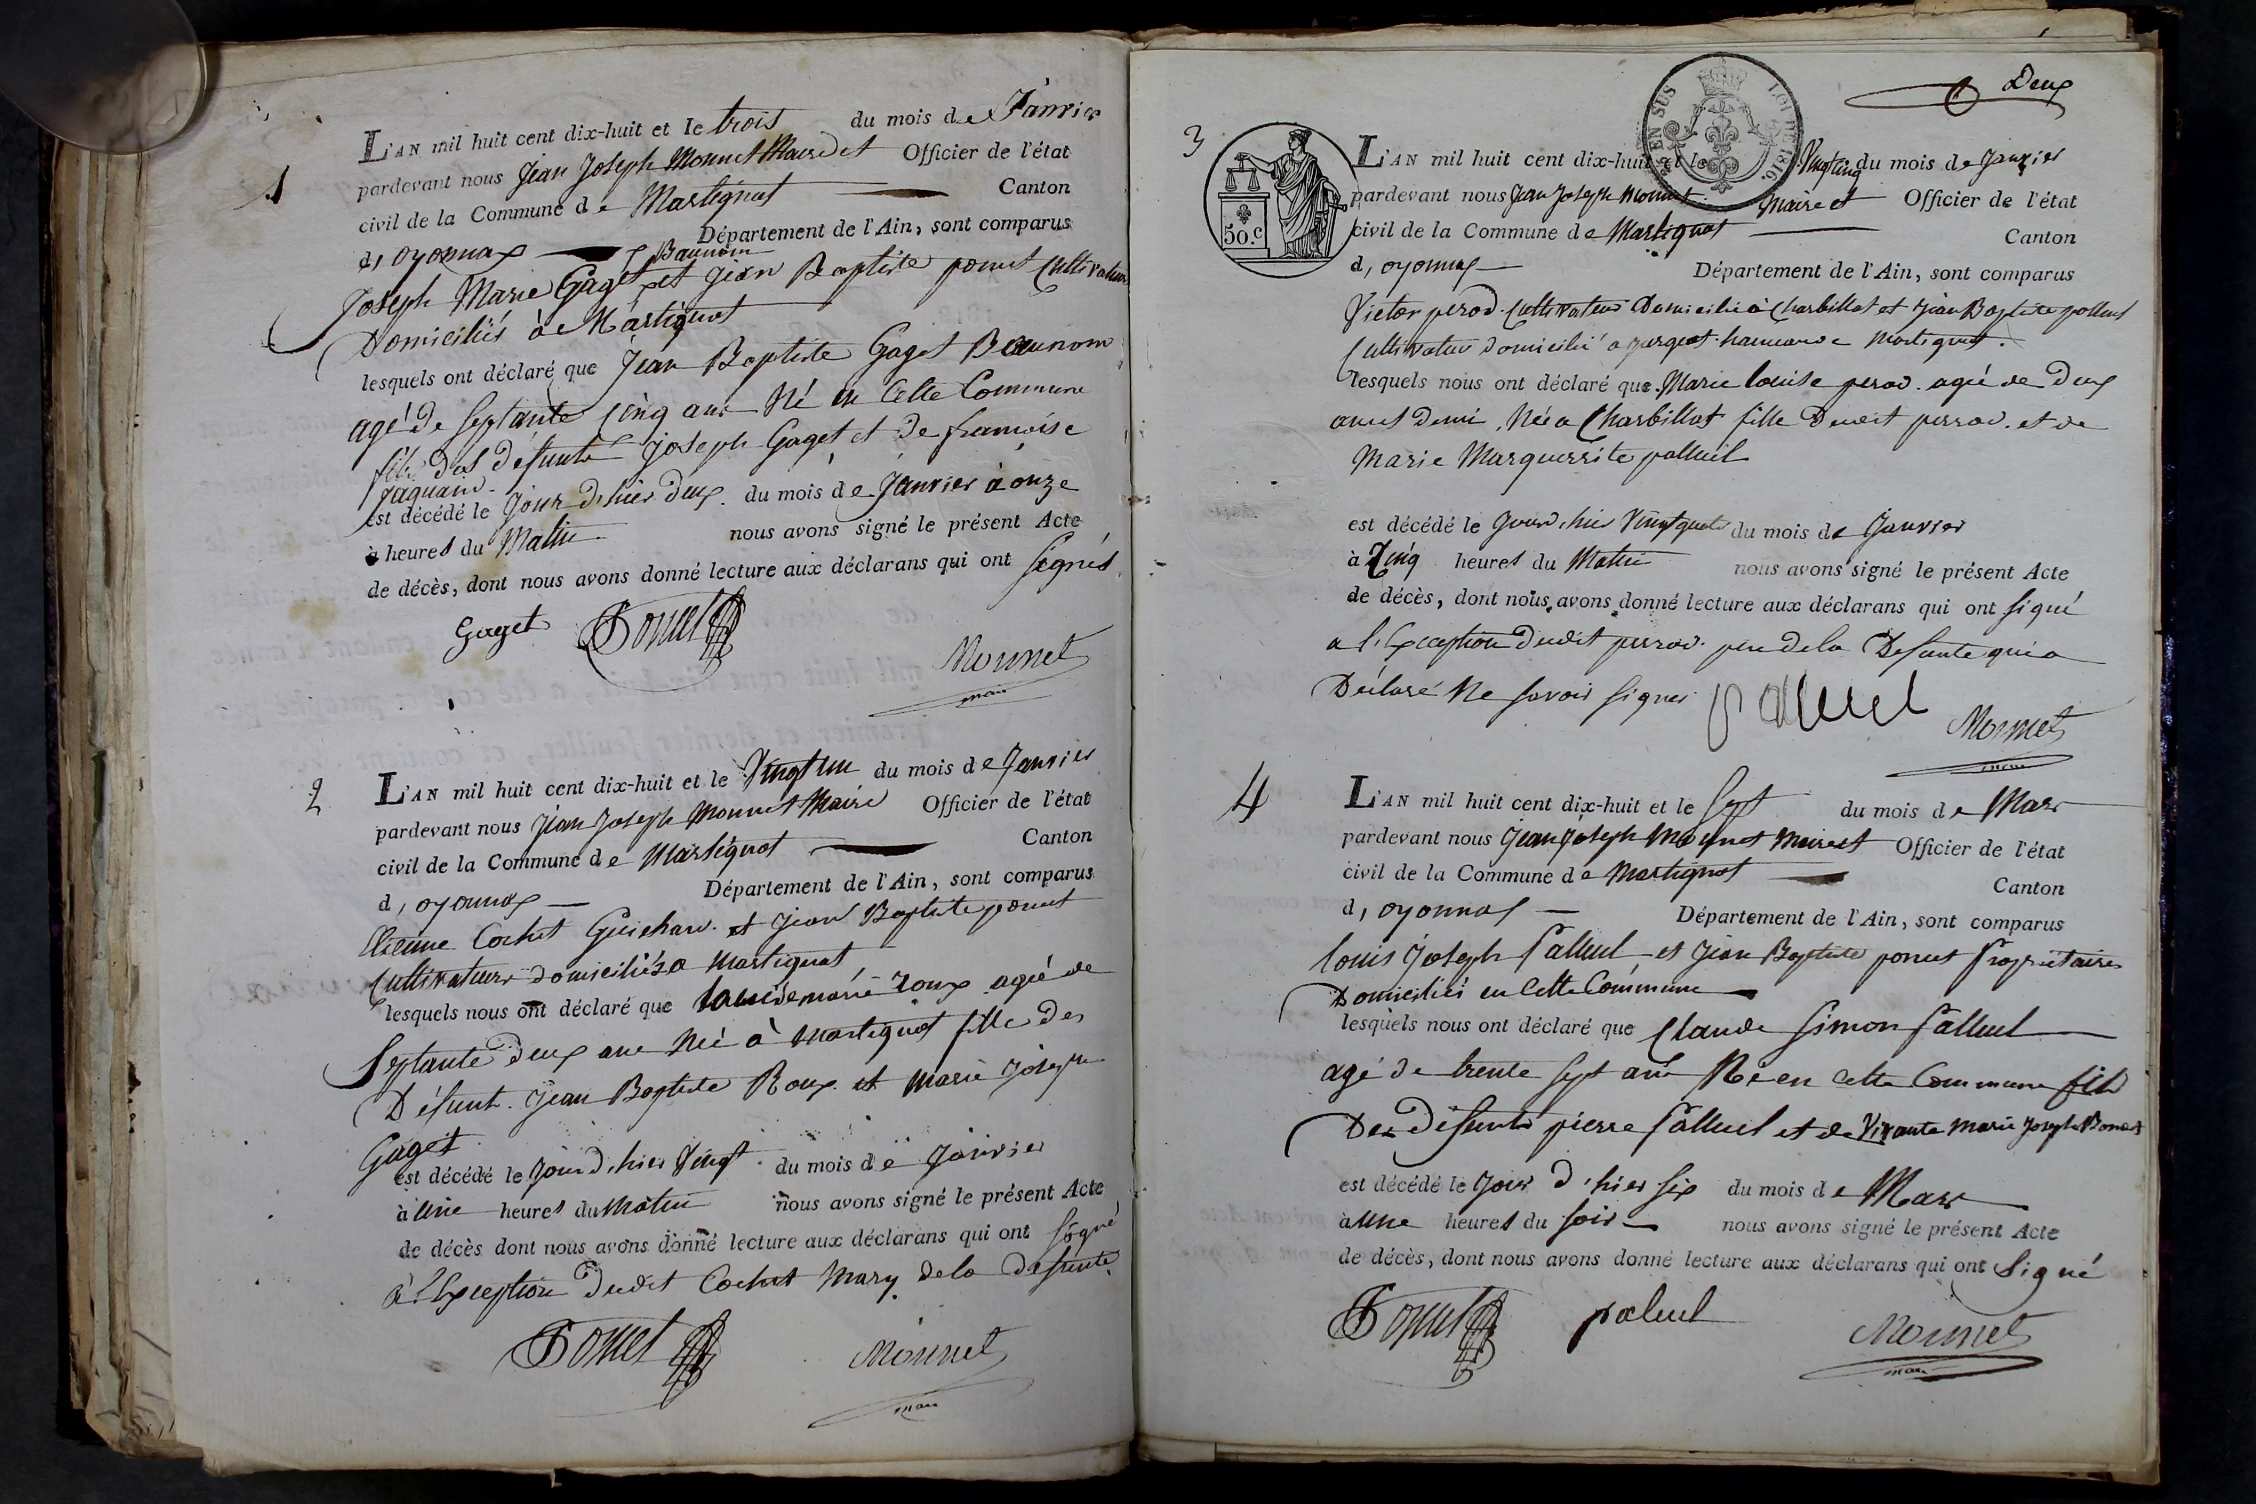 1
L'AN mil huit cent dix-huit et le trois du mois de Janvier
pardevant nous Jean Joseph Monnet Maire et Officier de l'état
civil de la Commune de Martignat Canton
d'oyonnax Département de l'Ain, sont comparus
Baunom
Joseph Marie Gaget et Jean Baptiste ponut Cultivateurs
Domiciliés à Martignat
lesquels ont déclaré que Jean Baptiste Gaget Beaunom
agé de septante Cinq ans Né en Cette Commune
fils des défunts Joseph Gaget et de francoise
est décédé le Jour d'hier deux du mois de Janvier à onze
à heures du Matin nous avons signé le présent Acte
de décès, dont nous avons donné lecture aux déclarans qui ont signés
Gaget Ponut Monnet
maire
2
L'AN mil huit cent dix-huit et le Vingt un du mois de Janvier
pardevant nous Jean Joseph Monnet Maire Officier de l'état
civil de la Commune de Martignat Canton
d'oyonnax Département de l'Ain, sont comparus
Etienne Cochet Guichard et Jean Baptiste ponut
Cultivateurs domiciliés a Martignat
lesquels nous ont déclaré que marie roux agée de
Septante deux ans Née à Martignat fille des
Défunt Jean Baptiste Roux et Marie Joseph
Gaget
est décédé le Jour d'hier Vingt du mois de Janvier
à une heures du Matin nous avons signé le présent Acte
de décès dont nous avons donné lecture aux déclarans qui ont signé
à l'Exception dudit Cochet Mary de la defunte
Ponut Monnet
maire
Deux
EN SUS LOI DE 1816.
3
50.c
L'AN mil huit cent dix-huit et le Vingt cinq du mois de Janvier
pardevant nous Jean Joseph Monnet Maire et Officier de l'état
civil de la Commune de Martignat Canton
d'oyonnax Département de l'Ain, sont comparus
Victor perod Cultivateur Domicilié à Charbillat et Jean Baptiste palluel
Cultivateur domicilié a hameau de Martignat
lesquels nous ont déclaré que Marie louise perod agée de Deux
ans et Demi Née a Charbillat fille Dudit perrod et de
Marie Marguerite palluel
est décédé le Jour d'hier Vingt quatre du mois de Janvier
à Cinq heures du Matin nous avons signé le présent Acte
de décès, dont nous avons donné lecture aux déclarans qui ont signé
a l'Exception dudit perrod pere de la Defunte qui a
Déclaré Ne savoir signer palluel Monnet
maire
4
L'AN mil huit cent dix-huit et le Sept du mois de Mars
pardevant nous Jean Joseph Monnet Maire et Officier de l'état
civil de la Commune de Martignat Canton
d'oyonnax Département de l'Ain, sont comparus
Louis Joseph Palluel et Jean Baptiste ponut Propriétaires
Domiciliés en Cette Commune
lesquels nous ont déclaré que Claude Simon Palluel
agé de trente sept ans Né en Cette Commune fils
Des Défunts pierre Palluel et de Vivante Marie Joseph
est décédé le Jour d'hier six du mois de Mars
à une heures du soir nous avons signé le présent Acte
de décès, dont nous avons donné lecture aux déclarans qui ont Signé
Ponut paluel Monnet
maire